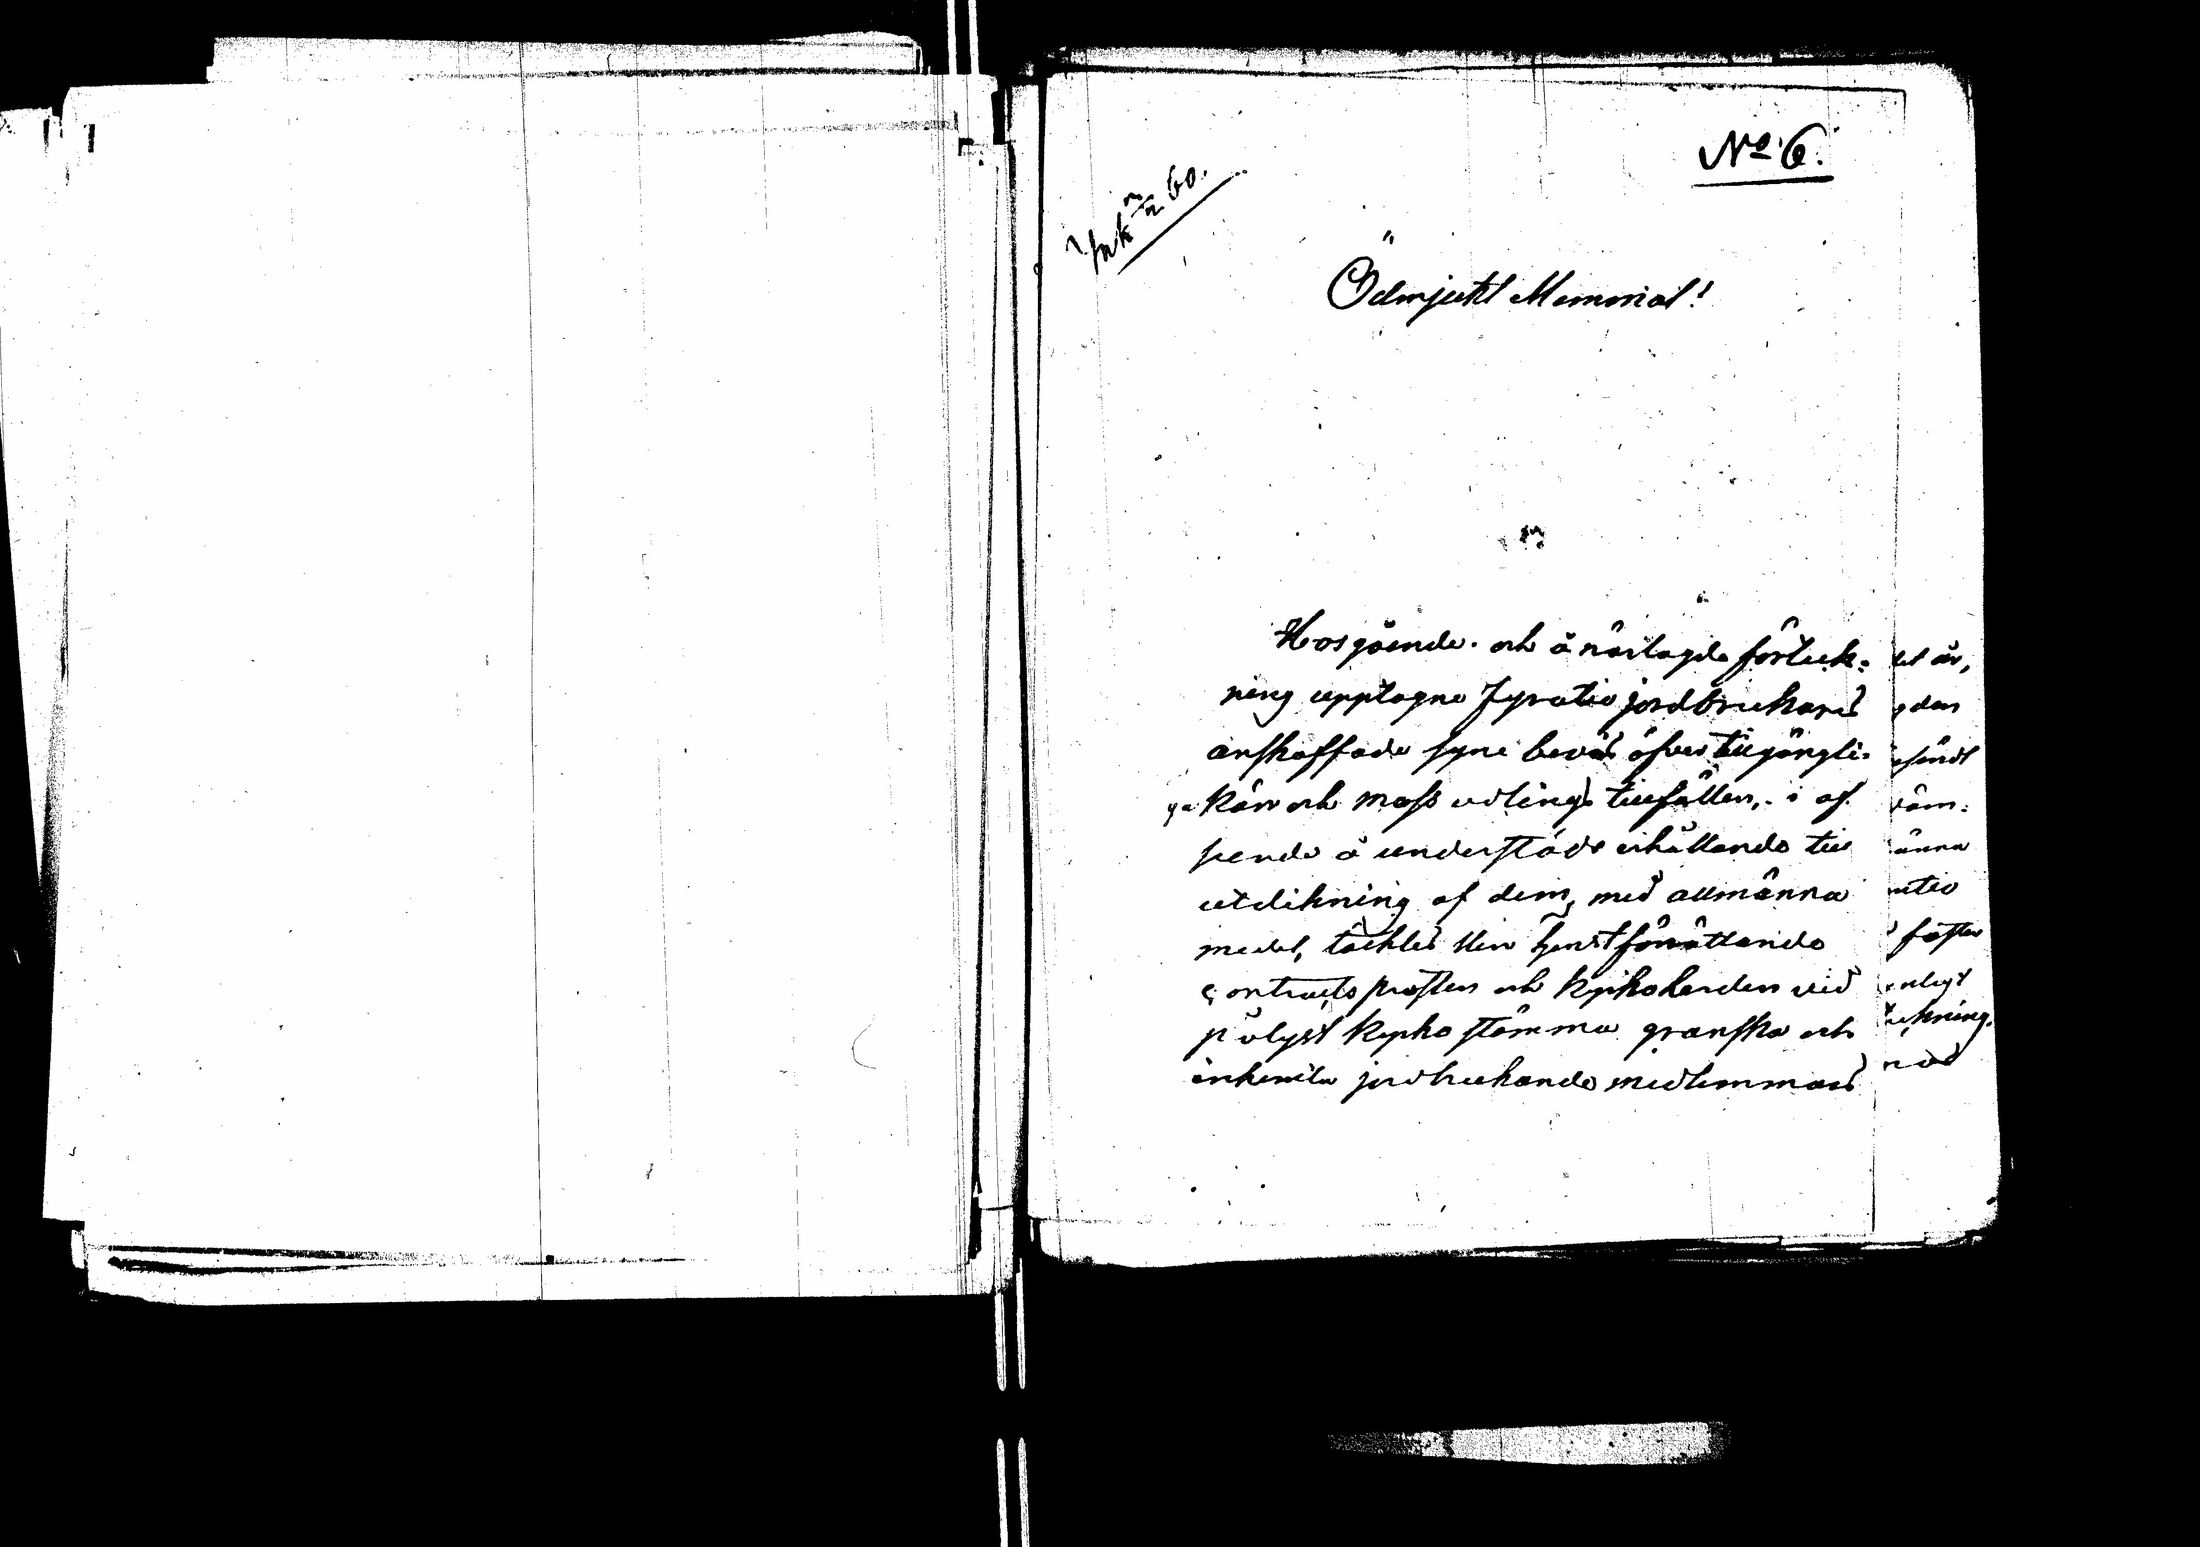 No 6.
Ink 60.
Ödmjukt Memorial!
Hosgående och å närlagde förteck-
ning upptagne Fyratio jordbrukares
anskaffade syne bevis öfver tillgängli-
ga Kärr och moss odlings tillfällen, i af
seende å understöds erhållande till
utdikning af dem, med allmänna
medel, täcktes Herr tjenstförrättande
contractsprosten och Kyrkoherden vid
pålyst Kyrko stämma granska och
inhemta jordbrukande medlemmars
det är,
gdens
äm-
änna
ratio
enligt
ckning.